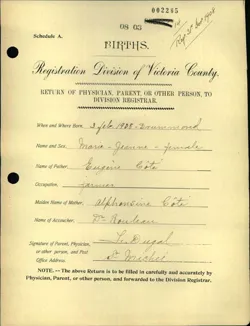 002245
08 03
Schedule A.
BIRTHS.
Registration Division of Victoria County.
RETURN OF PHYSICIAN, PARENT, OR OTHER PERSON, TO
DIVISION REGISTRAR.
When and Where Born, 3 feb. 1908 - Drummond
Name and Sex, Marie-Jeanne - female
Name of Father, Eugène Côté
Occupation, farmer
Maiden Name of Mother, Alphonsine Côté
Name of Accoucher, Dr Rouleau
Signature of Parent, Physician,
or other person, and Post
Office Address. Dugal
St Michel
NOTE.—The above Return is to be filled in carefully and accurately by
Physician, Parent, or other person, and forwarded to the Division Registrar.